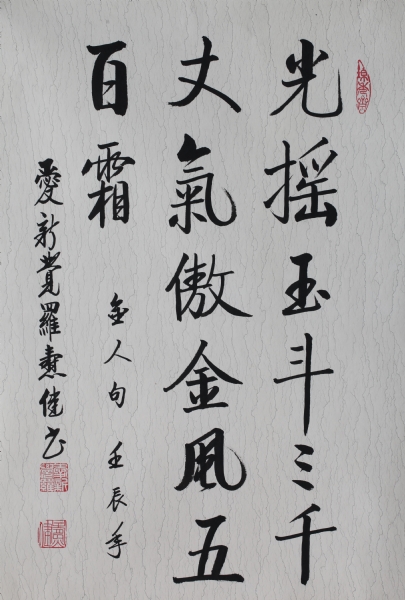 光摇玉斗三千
丈氣傲金風五
百霜
金人句 壬辰年
愛新覺羅佳书